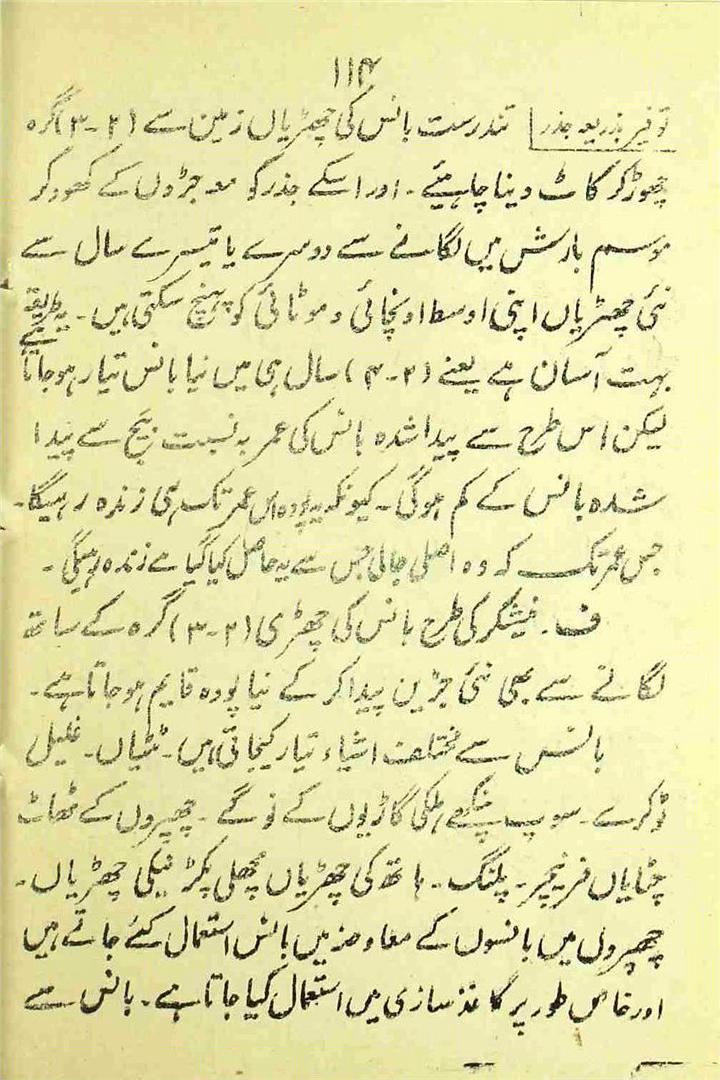 ۱۱۴
توفیر بذریعہ جذر تندرست بانس کی چھڑیاں زمین سے (۲-۳) گرہ
چھوڑ کر کاٹ دینا چاہیئے۔ اور اسکے جذر کو معہ جڑوں کے کھود کر
موسم بارش میں لگانے سے دوسرے یا تیسرے سال سے
نئی چھڑیاں اپنی اوسط اونچائی و موٹائی کو پہنچ سکتی ہیں۔ یہ طریقے
بہت آسان ہے یعنے (۲-۳) سال ہی میں نیا بانس تیار ہوجاتا ہے
لیکن اس طرح سے پیدا شدہ بانس کی عمر بہ نسبت بیج سے پیدا
شدہ بانس کے کم ہوگی۔ کیونکہ یہ پودہ اس عمر تک ہی زندہ رہیگا۔
جس عمر تک کہ وہ اصلی جالی جس سے یہ حاصل کیا گیا ہے زندہ رہیگی۔
ف۔ نیشکر کی طرح بانس کی چھڑی (۲-۳) گرہ کے ساتھ
لگانے سے بھی نئی جڑین پیدا کر کے نیا پودہ قایم ہوجاتا ہے۔
بانس سے مختلف اشیاء تیار کیجاتی ہیں۔ ٹٹیاں۔ غلیل
ٹوکرے۔ سوپ پنکھے ہلکی گاڑیوں کے نوگے۔ چھپروں کے ٹھاٹ
چٹایاں فرنیچر۔ پلنگ۔ ہاتھ کی چھڑیاں مچھلی پکڑنیکی چھڑیاں۔
چھپروں میں بانسوں کے معاوضہ میں بانس استعمال کئے جاتے ہیں
اور خاص طور پر کاغذ سازی میں استعمال کیا جاتا ہے۔ بانس سے